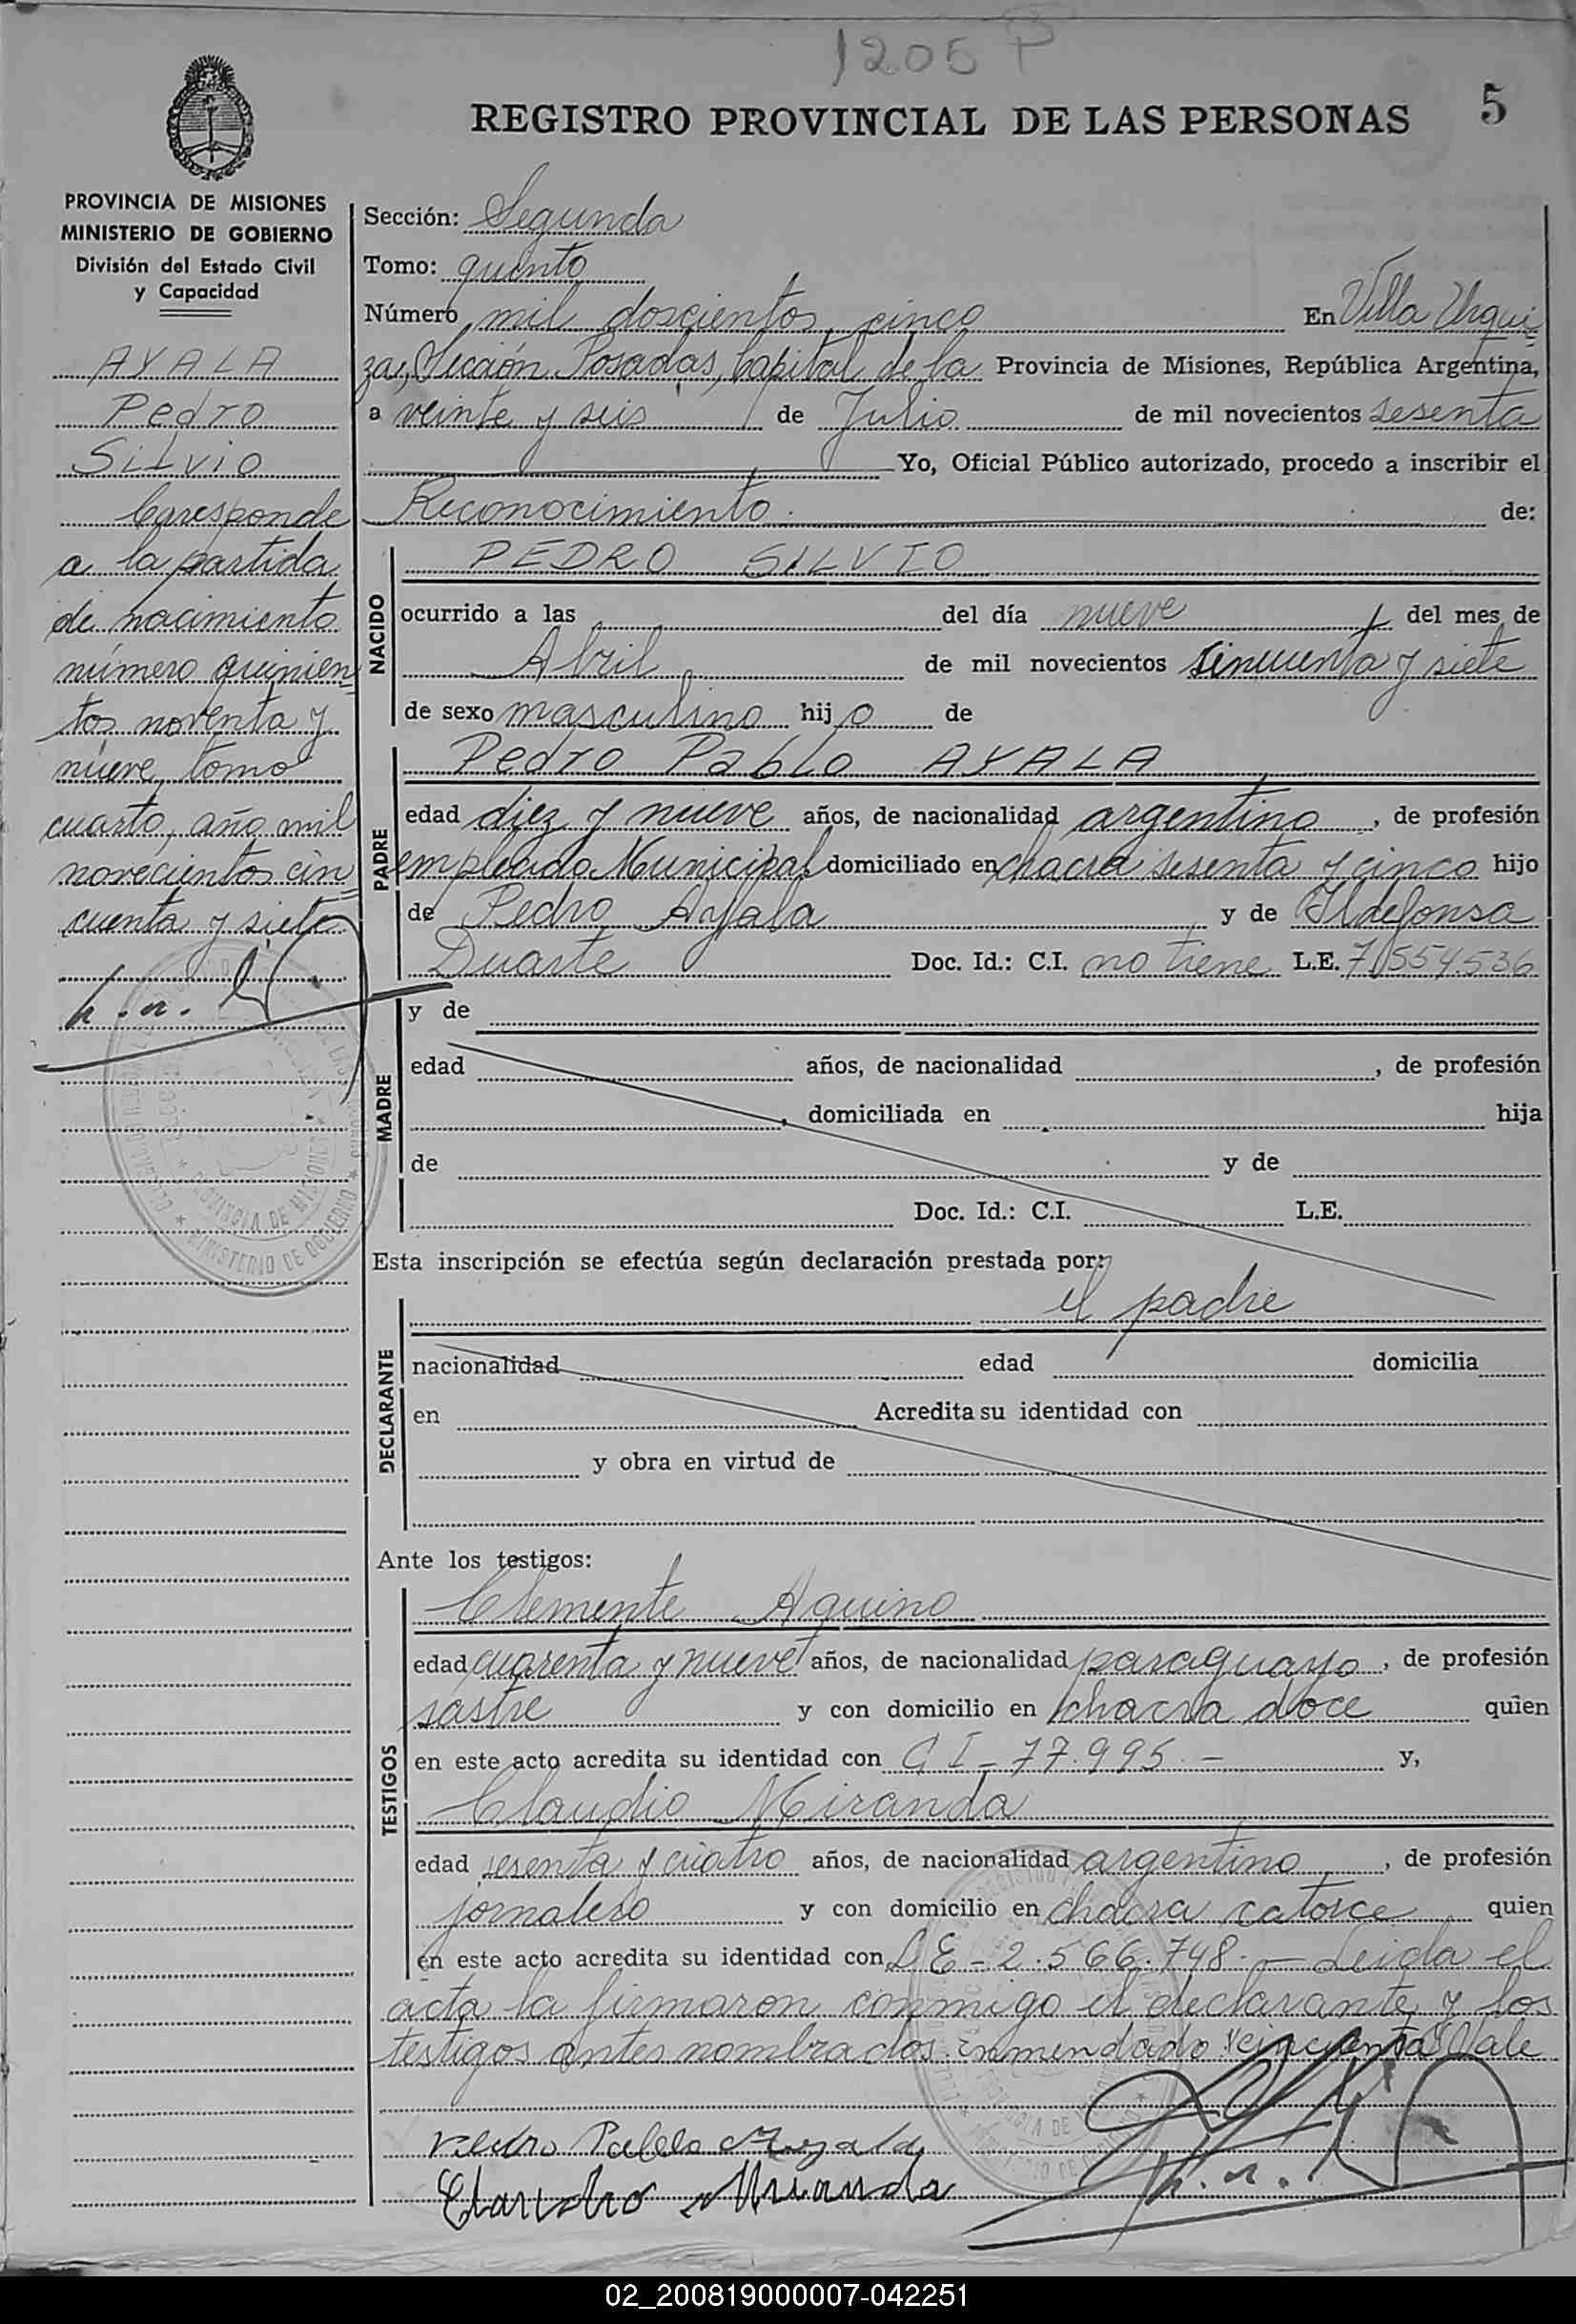 1205 P
REGISTRO PROVINCIAL DE LAS PERSONAS
5
PROVINCIA DE MISIONES
MINISTERIO DE GOBIERNO
División del Estado Civil
y Capacidad
AYALA
Pedro
Silvio
Corresponde
a la partida
de nacimiento
número quinien
tos noventa y
nueve, tomo
cuarto, año mil
novecientos cin
cuenta y siete
Sección: Segunda
Tomo: quinto
Número mil doscientos cinco En Villa Urqui
za, Sección Posadas, Capital de la Provincia de Misiones, República Argentina,
a veinte y seis de Julio de mil novecientos sesenta
Yo, Oficial Público autorizado, procedo a inscribir el
Reconocimiento de:
NACIDO
PEDRO SILVIO
ocurrido a las del día nueve del mes de
Abril de mil novecientos sincuenta y siete
de sexo masculino hijo de
PADRE
Pedro Pablo AYALA
edad diez y nueve años, de nacionalidad argentino, de profesión
empleado Municipal domiciliado en chacra sesenta y cinco hijo
de Pedro Ayala y de Ildefonsa
Duarte Doc. Id.: C.I. no tiene L.E. 7.554.536
MADRE
y de
edad años, de nacionalidad , de profesión
, domiciliada en hija
de y de
Doc. Id.: C.I. L.E.
Esta inscripción se efectúa según declaración prestada por:
el padre
DECLARANTE
nacionalidad edad domicilia
en Acredita su identidad con
y obra en virtud de
Ante los testigos:
TESTIGOS
Clemente Aquino
edad cuarenta y nueve años, de nacionalidad paraguayo, de profesión
sastre y con domicilio en chacra doce quien
en este acto acredita su identidad con C I - 77.995 - y,
Claudio Miranda
edad sesenta y cuatro años, de nacionalidad argentino, de profesión
jornalero y con domicilio en chacra catorce quien
en este acto acredita su identidad con L E - 2.566.748 - Leida el
acta la firmaron conmigo el declarante y los
testigos antes nombrados. Enmendado "cincuenta" Vale
Pedro Pablo Ayala
Claudio Miranda
02_200819000007-042251